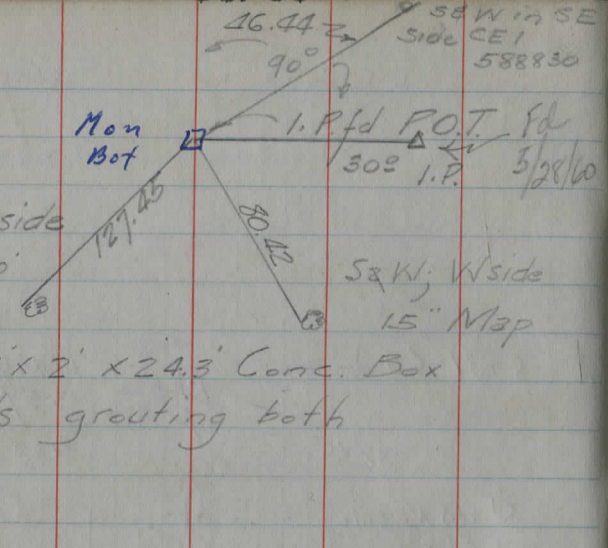 46.44
S&W in SE
Side CEI
588830
90°
Mon
Box
I.P.fd P.O.T. Fd
30° I.P. 5/28/60
side
127.45
80.42
S&W; Wside
15" Map
' x 2' x 24.3' Conc. Box
s grouting both